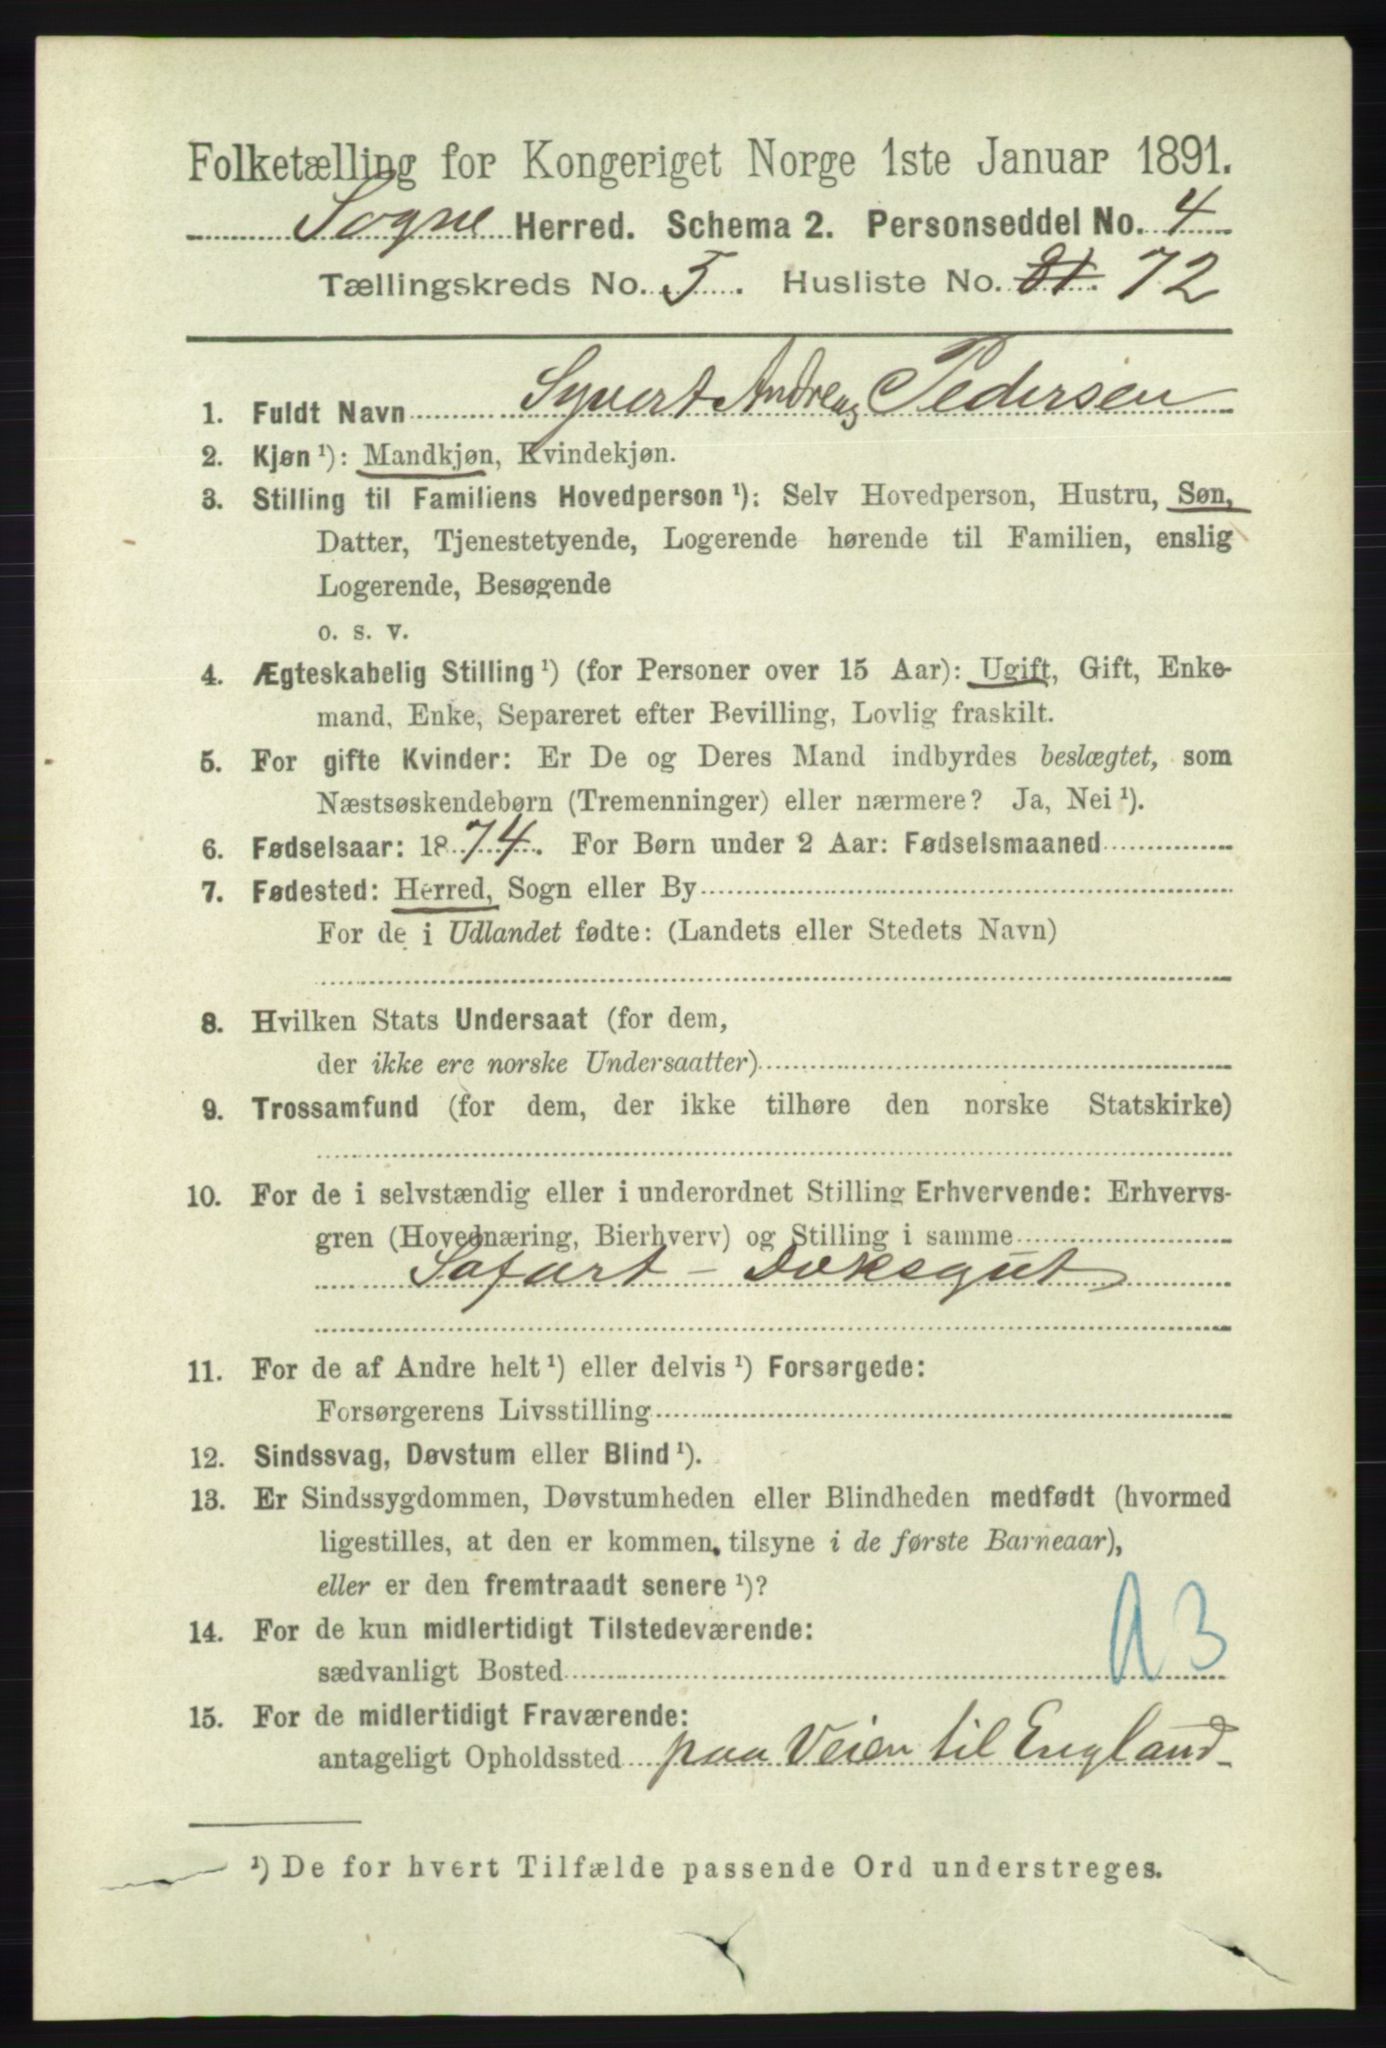 Folketælling for Kongeriget Norge 1ste Januar 1891.
Sogne Herred. Schema 2. Personseddel No. 4
Tællingskreds No. 5. Husliste No. 81. 72
1. Fuldt Navn Syvert Andreas Pedersen
2. Kjøn ¹): Mandkjøn, Kvindekjøn.
3. Stilling til Familiens Hovedperson ¹): Selv Hovedperson, Hustru, Søn,
Datter, Tjenestetyende, Logerende hørende til Familien, enslig
Logerende, Besøgende
o. s. v.
4. Ægteskabelig Stilling ¹) (for Personer over 15 Aar): Ugift, Gift, Enke-
mand, Enke, Separeret efter Bevilling, Lovlig fraskilt.
5. For gifte Kvinder: Er De og Deres Mand indbyrdes beslægtet, som
Næstsøskendebørn (Tremenninger) eller nærmere? Ja, Nei ¹).
6. Fødselsaar: 1874. For Børn under 2 Aar: Fødselsmaaned
7. Fødested: Herred, Sogn eller By
For de i Udlandet fødte: (Landets eller Stedets Navn)
8. Hvilken Stats Undersaat (for dem,
der ikke ere norske Undersaatter)
9. Trossamfund (for dem, der ikke tilhøre den norske Statskirke)
10. For de i selvstændig eller i underordnet Stilling Erhvervende: Erhvervs-
gren (Hovednæring, Bierhverv) og Stilling i samme
Søfart - Dæksgut
11. For de af Andre helt ¹) eller delvis ¹) Forsørgede:
Forsørgerens Livsstilling
12. Sindssvag, Døvstum eller Blind ¹).
13. Er Sindssygdommen, Døvstumheden eller Blindheden medfødt (hvormed
ligestilles, at den er kommen tilsyne i de første Barneaar),
eller er den fremtraadt senere ¹)?
14. For de kun midlertidigt Tilstedeværende:
sædvanligt Bosted
A3
15. For de midlertidigt Fraværende:
antageligt Opholdssted paa Veien til England
¹) De for hvert Tilfælde passende Ord understreges.